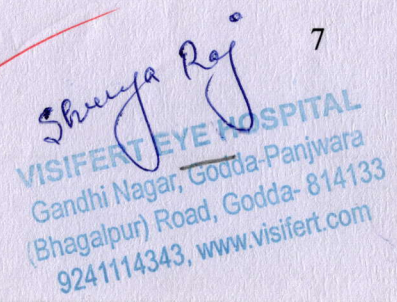 7
Shreya Raj
VISIFERT EYE HOSPITAL
Gandhi Nagar, Godda-Panjwara
(Bhagalpur) Road, Godda- 814133
9241114343, www.visifert.com